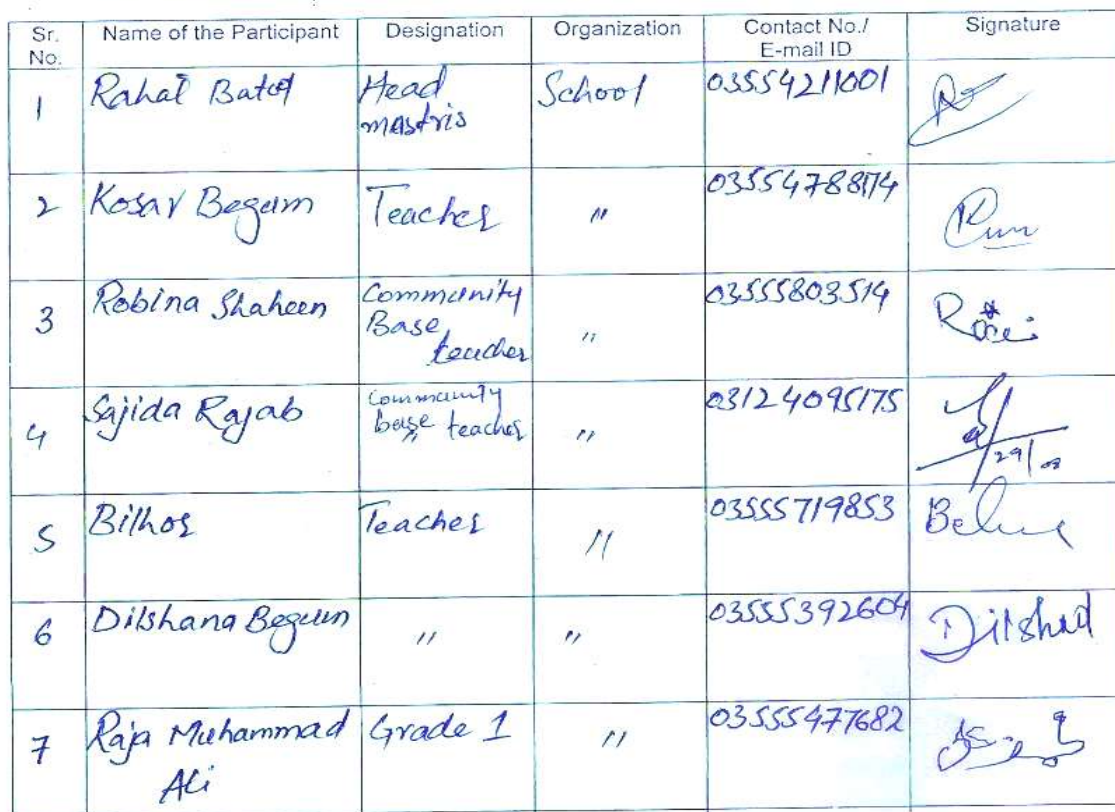 Sr. No. Name of the Participant Designation Organization Contact No./ E-mail ID Signature
1 Rahat Batol Head mastris School 03554211001
2 Kosar Begum Teacher " 03554788174
3 Robina Shaheen Community Base teacher " 03555803514
4 Sajida Rajab Community base teacher " 03124095175 29/08
5 Bilhor Teacher " 03555719853
6 Dilshana Begum " " 03555392604 Dilshad
7 Raja Muhammad Ali Grade 1 " 03555477682